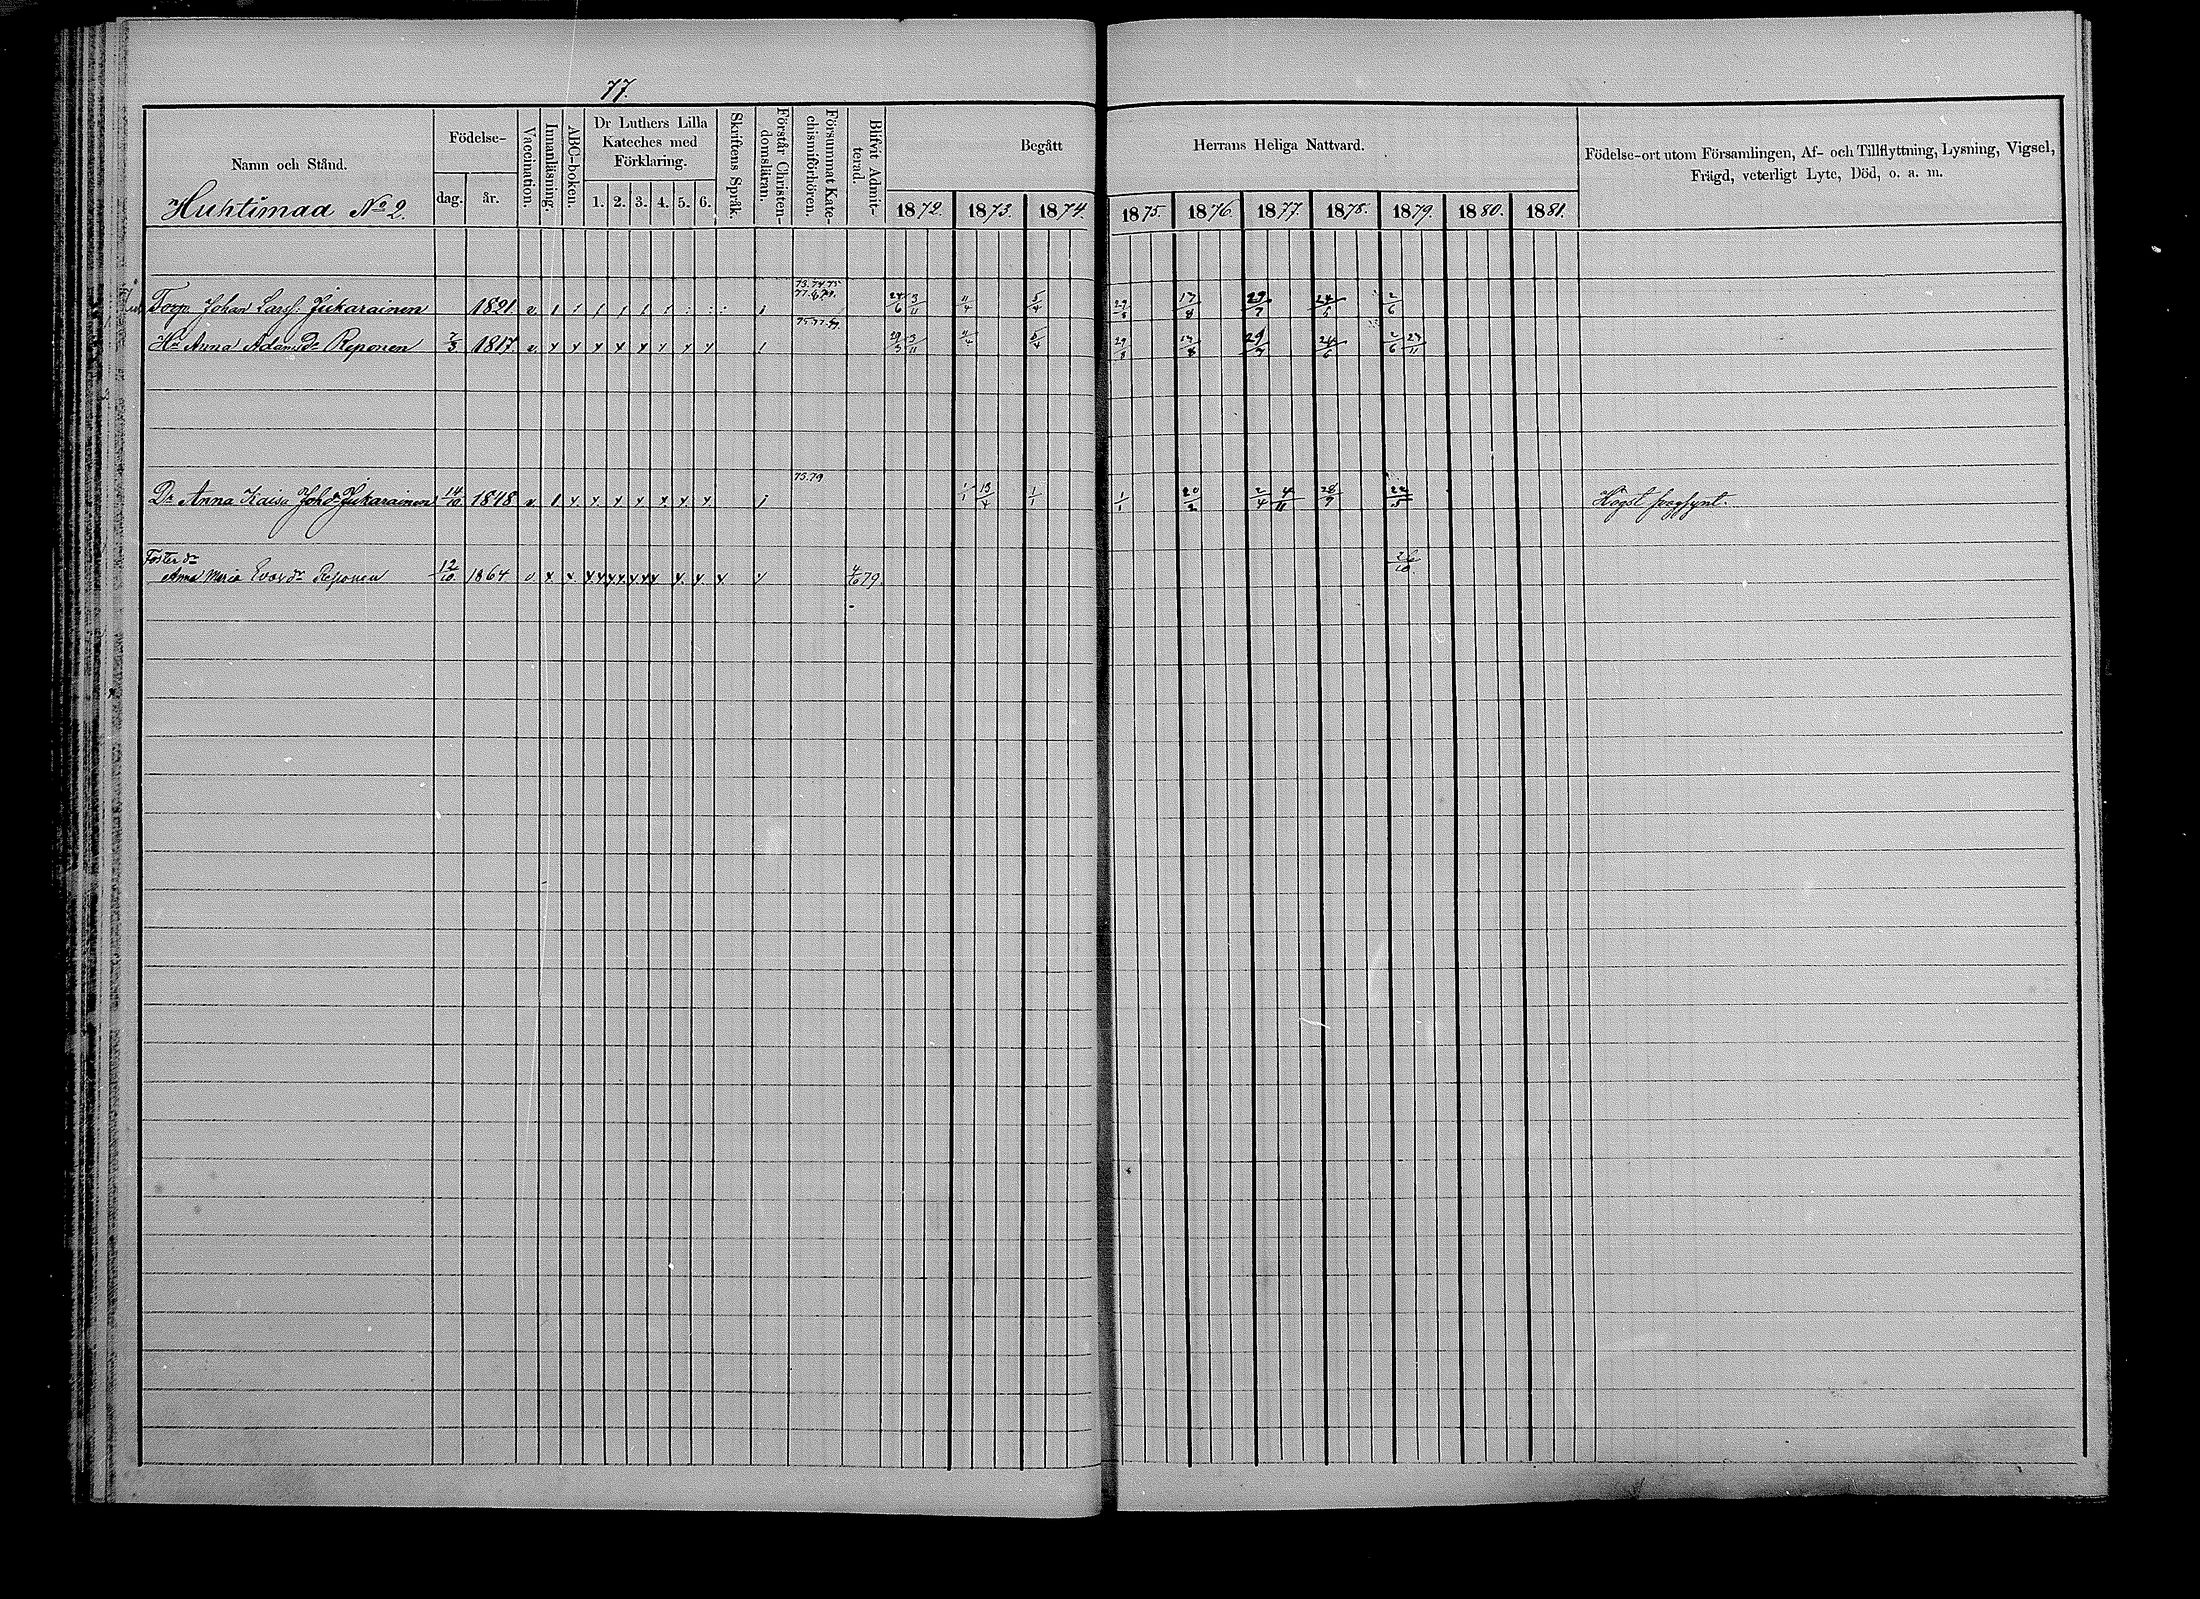 77.
Namn och Stånd.
Huhtimaa No 2.
Födelse-
dag. år.
Vaccination.
Innanläsning.
ABC-boken.
Dr Luthers Lilla
Kateches med
Förklaring.
1. 2. 3. 4. 5. 6.
Skriftens Språk.
Förstår Christen-
domsläran.
Försummat Kate-
chismiförhören.
Blifvit Admit-
terad.
Begått Herrans Heliga Nattvard.
1872. 1873. 1874. 1875. 1876. 1877. 1878. 1879. 1880. 1881.
Födelse-ort utom Församlingen, Af- och Tillflyttning, Lysning, Vigsel,
Frägd, veterligt Lyte, Död, o. a. m.
73. 74. 75
Torp. Johan Larss. Jukarainen 1821. v. 24/6 3/11 11/4 5/4 29/8 13/8 29/7 24/6 2/6
Hu Anna Adamsdr Reponen 7/3 1817. v. 3/11 5/4 29/8 13/8 29/7 24/6 2/6 23/11
75.79
Dr Anna Kaisa Johdr Jukarainen 14/10 1848 v. 1/1 13/4 1/1 1/1 20/2 2/4 4/11 28/9 22/5 Högst svagsynt.
Foster dr
Anna Maria Evardr Reponen 12/10 1864 v. 79 26/10